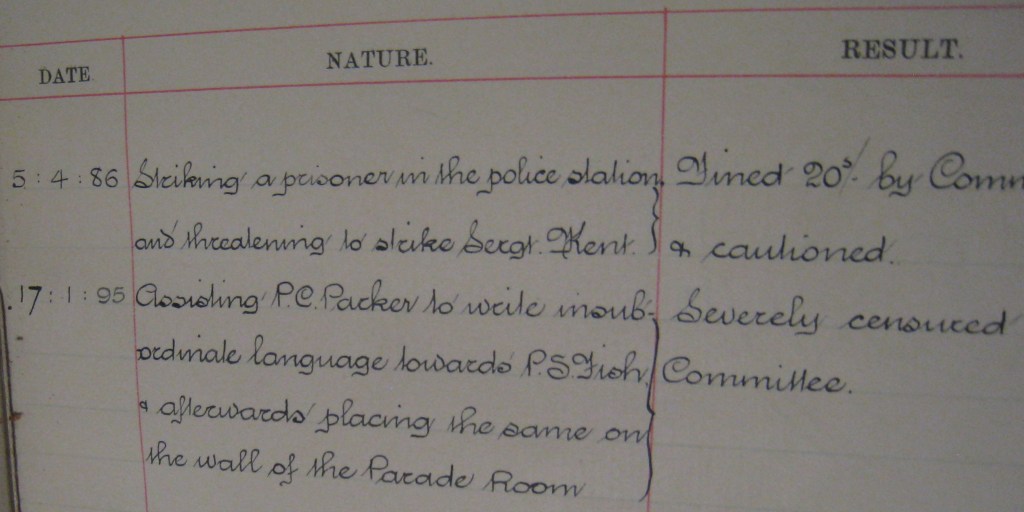 DATE NATURE. RESULT.
5:4:86 Striking a prisoner in the police station, Fined 20s/- by Comm
and threatening to strike Sergt. Kent. & cautioned.
17:1:95 Assisting P.C. Packer to write insub- Severely censured
ordinate language towards P.S. Fish, Committee.
& afterwards placing the same on
the wall of the Parade Room